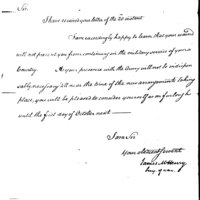 Sir.
I have received your letter of the 20 instant.
I am exceedingly happy to learn that your wound
will not prevent you from continuing in the military service of your
Country. As your presence with the Army will not be indis
pensably necessary till near the time of the new arrangements taking
place, you will be pleased to consider yourself as on furlough
until the first day of October next —
I am Sir
Your obedient servant
James McHenry